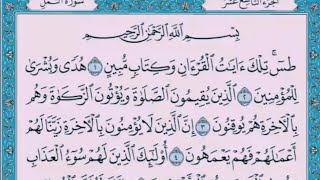 سورة النمل الجزء التاسع عشر
بِسْمِ اللَّهِ الرَّحْمَٰنِ الرَّحِيمِ
طسٓ ۚ تِلْكَ ءَايَٰتُ الْقُرْءَانِ وَكِتَابٍ مُّبِينٍ ١ هُدًى وَبُشْرَىٰ
لِلْمُؤْمِنِينَ ٢ الَّذِينَ يُقِيمُونَ الصَّلَوٰةَ وَيُؤْتُونَ الزَّكَوٰةَ وَهُم
بِالْءَاخِرَةِ هُمْ يُوقِنُونَ ٣ إِنَّ الَّذِينَ لَا يُؤْمِنُونَ بِالْءَاخِرَةِ زَيَّنَّا لَهُمْ
أَعْمَٰلَهُمْ فَهُمْ يَعْمَهُونَ ٤ أُو۟لَٰٓئِكَ الَّذِينَ لَهُمْ سُوٓءُ الْعَذَابِ